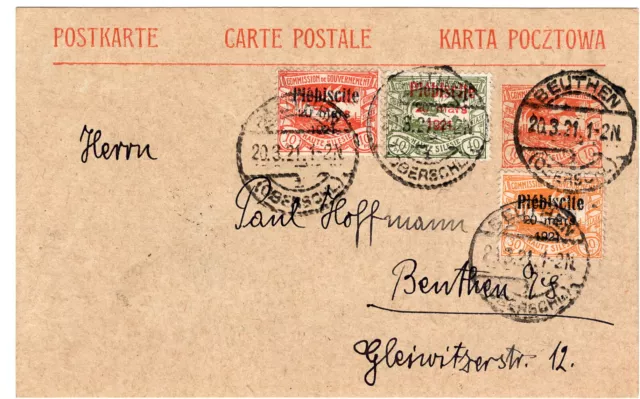 POSTKARTE CARTE POSTALE KARTA POCZTOWA
COMMISSION DE GOUVERNEMENT
Plébiscite
20 mars
1921.
HAUTE SILÉSIE
10
Plébiscite
20 mars
1921.
40
COMMISSION DE GOUVERNEMENT
BEUTHEN
20.3.21.1-2N.
(OBERSCHL.)
20.3.21.1-2N.
(OBERSCHL.)
(OBERSCHL.)
Plébiscite
20 mars
1921.
40
BEUTHEN
20.3.21.1-2N.
(OBERSCHL.)
Herrn
Paul Hoffmann
Beuthen
Gleiwitzerstr. 12.